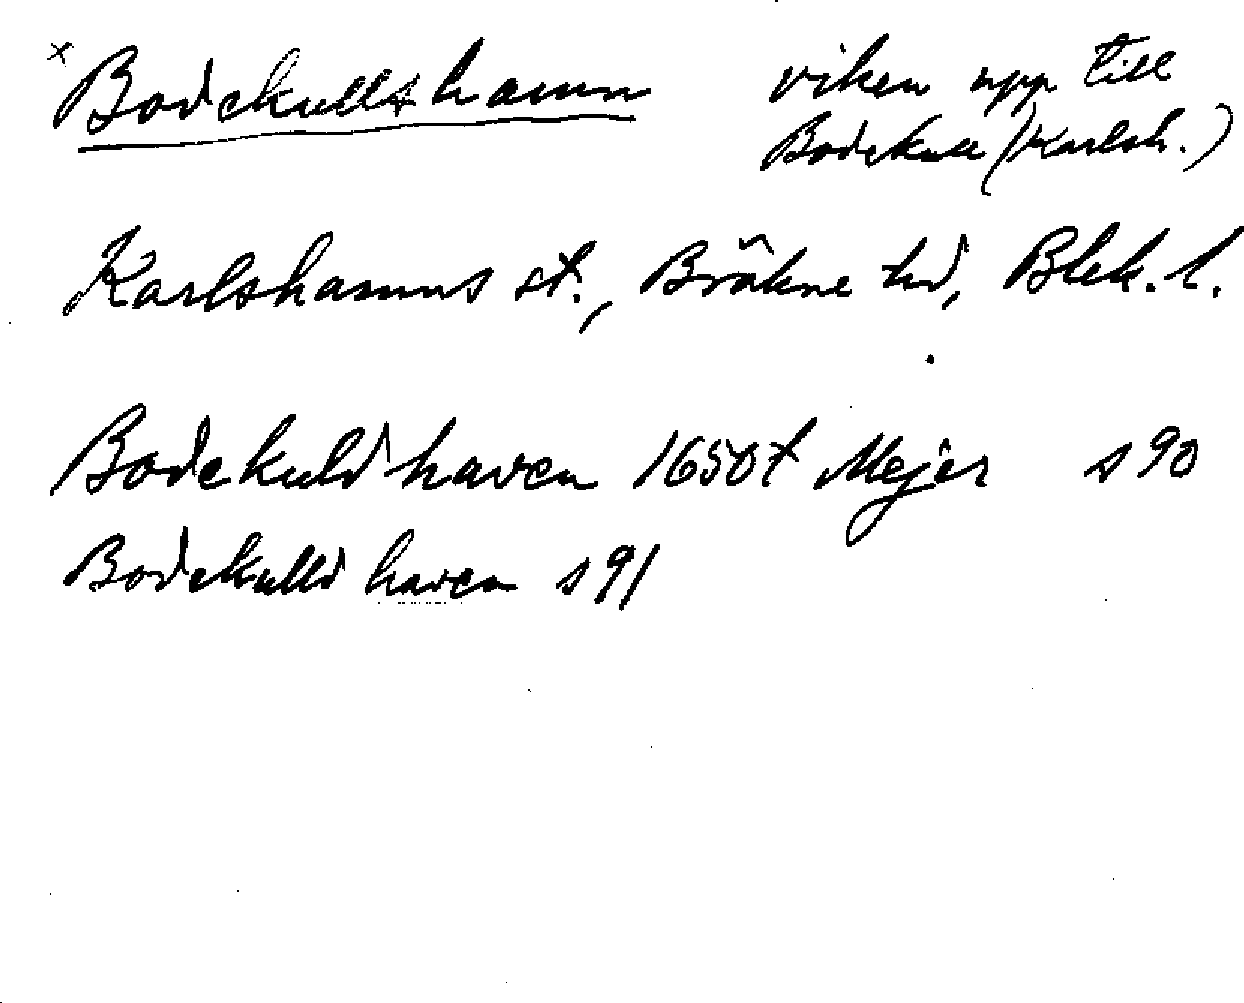 x Bodekullshamn
viken upp till
Bodekull (Karlsh.)
Karlshamns st., Bräkne hd, Blek. l.
Bodekuld haven 1650t Mejer s 90
Bodekulld haven s 91